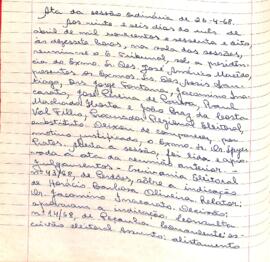 Ata da sessão ordinária de 26-4-68.
Aos vinte e seis dias do mês de
abril de mil novecentos e sessenta e oito
às dezesseis horas, na sala das sessões,
reuniu-se o E. Tribunal, sob a presidên-
cia do Exmo. Sr. Des. José Américo Macêdo,
presentes os Exmos. Srs. Des.
José Fontana, Jacomino Ina-
carato, José Pereira de Paiva, Raul
Machado Horta e João Braz da Costa
Val Filho, Procurador Regional Eleitoral,
substituto. Deixou de comparecer, por
motivo justificado, o Exmo. Sr. Dr.
Prates. Aberta a sessão, foi lida e apro-
vada a ata da reunião anterior.
Julgamentos - Escrivania Eleitoral
nº 43/68, de sôbre a indicação
de Horácio Barbosa Oliveira. Relator:
Dr. Jacomino Inacarato. Decisão:
aprovaram a indicação. Consulta
nº 14/68, de Peçanha. Consulente: es-
crivão eleitoral. Assunto: alistamento